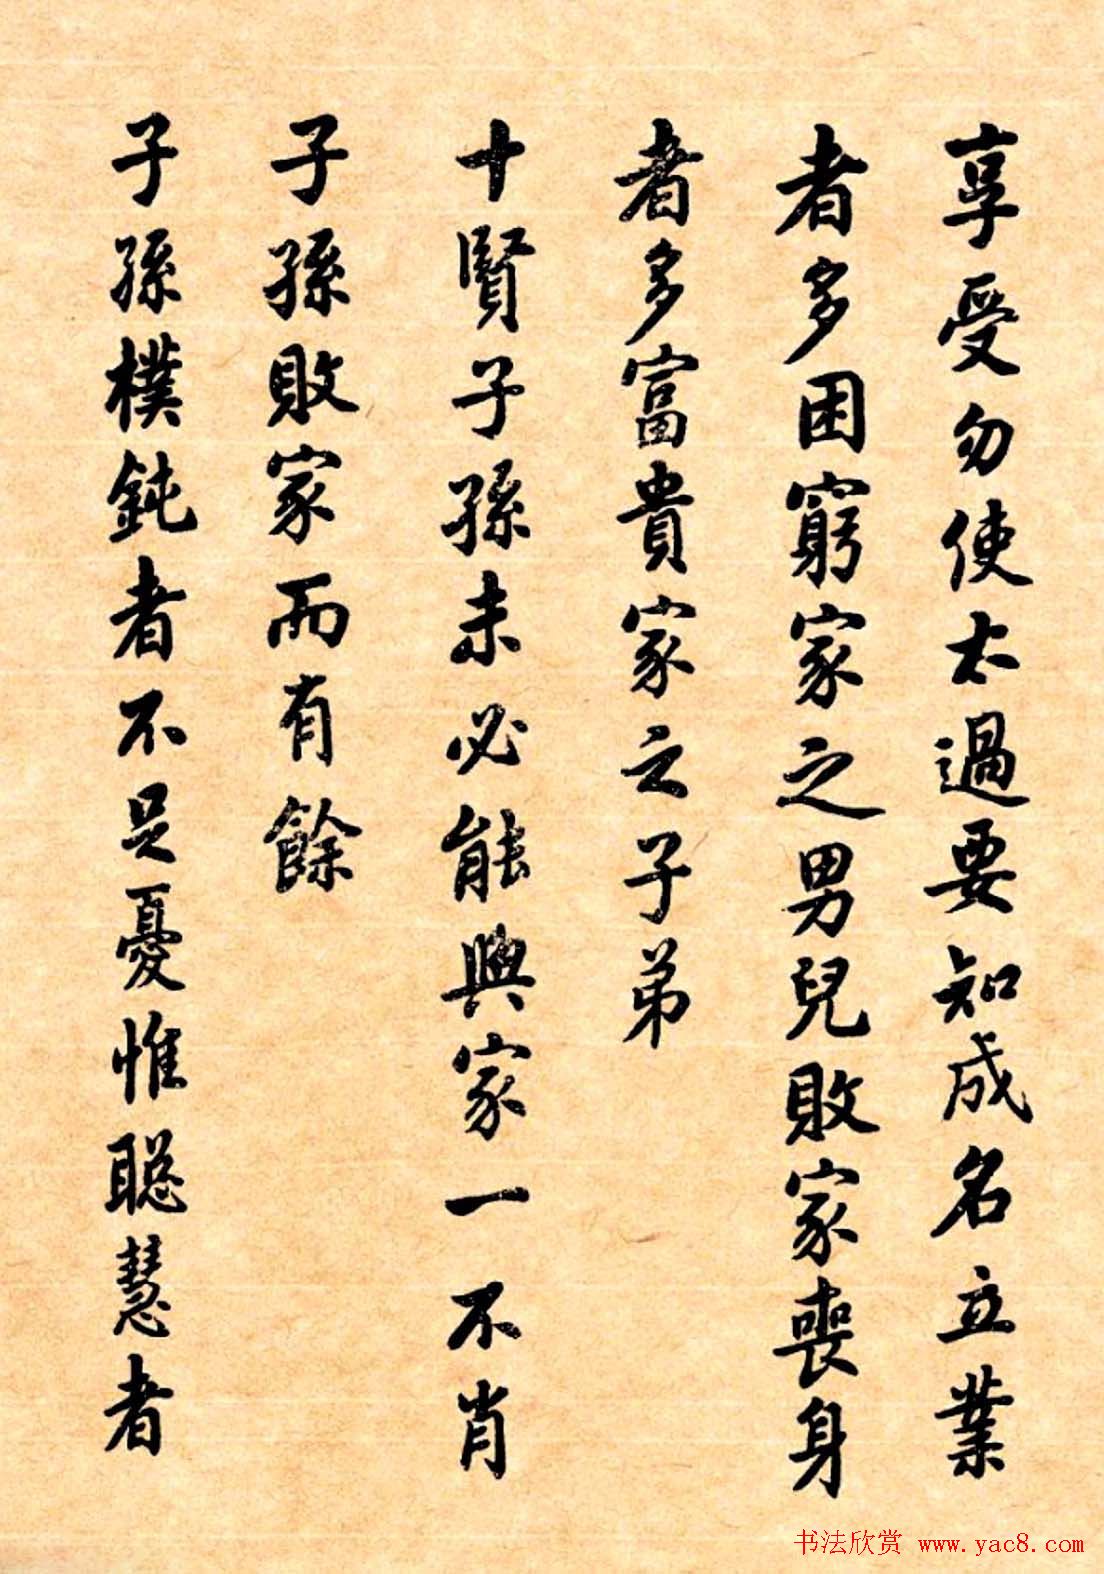 享受勿使太過要知成名立業
者多困窮家之男兒敗家喪身
者多富貴家之子弟
十賢子孫未必能興家一不肖
子孫敗家而有餘
子孫樸鈍者不足憂惟聪慧者
书法欣赏 www.yac8.com